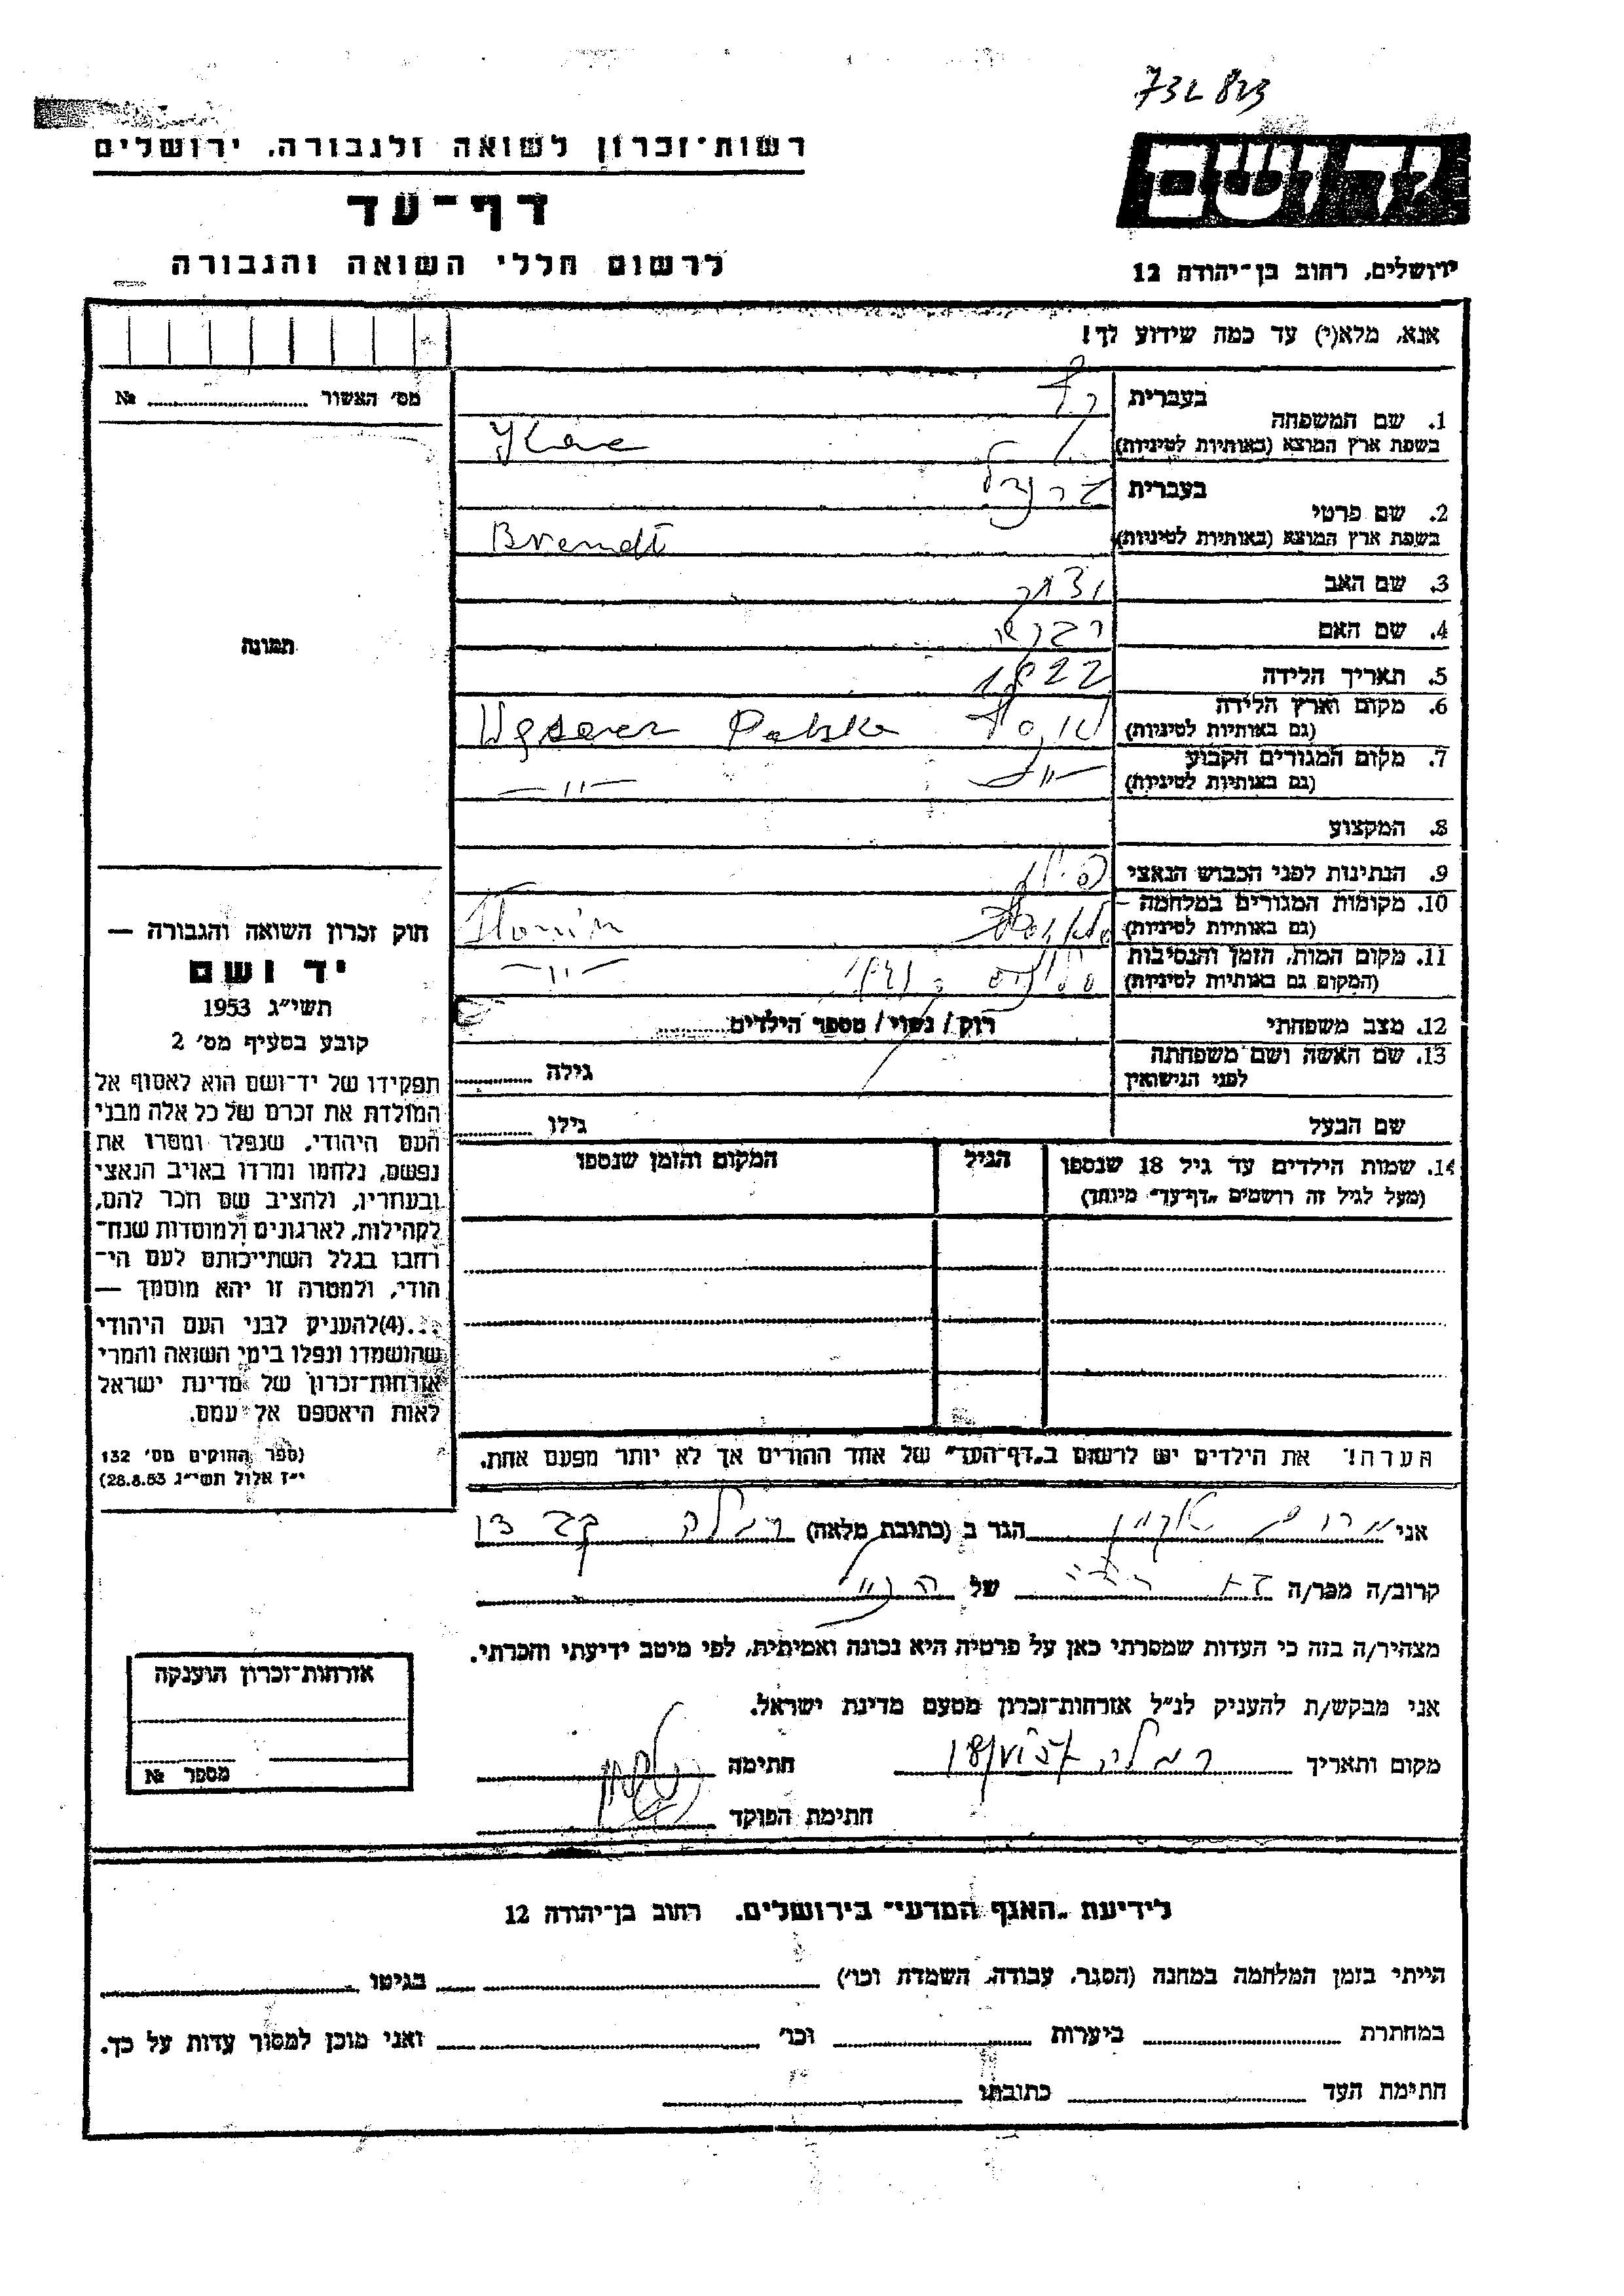 732823
רשות־זכרון לשואה ולגבורה, ירושלים
יד ושם
דף־עד
לרשום חללי השואה והגבורה
ירושלים, רחוב בן־יהודה 12
אנא, מלא(י) עד כמה שידוע לך!
מס׳ האשור № 
בעברית
1. שם המשפחה
בשפת ארץ המוצא (באותיות לטיניות)
בעברית
2. שם פרטי
בשפת ארץ המוצא (באותיות לטיניות) Brendl
3. שם האב יצחק
4. שם האם רבקה
5. תאריך הלידה 1922
6. מקום וארץ הלידה
(גם באותיות לטיניות) Polska
7. מקום המגורים הקבוע
(גם באותיות לטיניות) -"- -"-
8. המקצוע
9. הנתינות לפני הכבוש הנאצי פולין
10. מקומות המגורים במלחמה
(גם באותיות לטיניות) Slonim
11. מקום המות, הזמן והנסיבות
(המקום גם באותיות לטיניות) -"-
12. מצב משפחתי רוק / נשוי / מספר הילדים
13. שם האשה ושם משפחתה
לפני הנישואין גילה
שם הבעל גילו
14. שמות הילדים עד גיל 18 שנספו הגיל המקום והזמן שנספו
(מעל לגיל זה רושמים „דף־עד״ מיוחד)
הערה! את הילדים יש לרשום ב„דף־העד״ של אחד ההורים אך לא יותר מפעם אחת.
תמונה
חוק זכרון השואה והגבורה —
יד ושם
תשי״ג 1953
קובע בסעיף מס׳ 2
תפקידו של יד־ושם הוא לאסוף אל
המולדת את זכרם של כל אלה מבני
העם היהודי, שנפלו ומסרו את
נפשם, נלחמו ומרדו באויב הנאצי
ובעוזריו, ולהציב שם וזכר להם,
לקהילות, לארגונים ולמוסדות שנח־
רחבו בגלל השתייכותם לעם הי־
הודי, ולמטרה זו יהא מוסמך —
...(4)להעניק לבני העם היהודי
שהושמדו ונפלו בימי השואה והמרי
אזרחות־זכרון של מדינת ישראל
לאות היאספם אל עמם.
(ספר החוקים מס׳ 132
י״ז אלול תשי״ג 28.8.53)
אני הגר ב (כתובת מלאה) רמלה
קרוב/ה מכר/ה של
מצהיר/ה בזה כי העדות שמסרתי כאן על פרטיה היא נכונה ואמיתית, לפי מיטב ידיעתי והכרתי.
אני מבקש/ת להעניק לנ״ל אזרחות־זכרון מטעם מדינת ישראל.
מקום ותאריך רמלה חתימה
חתימת הפוקד
אזרחות־זכרון הוענקה
מספר №
לידיעת „האגף המדעי״ בירושלים, רחוב בן־יהודה 12
הייתי בזמן המלחמה במחנה (הסגר, עבודה, השמדת וכו׳) בגיטו
במחתרת ביערות וכו׳ ואני מוכן למסור עדות על כך.
חתימת העד כתובתו